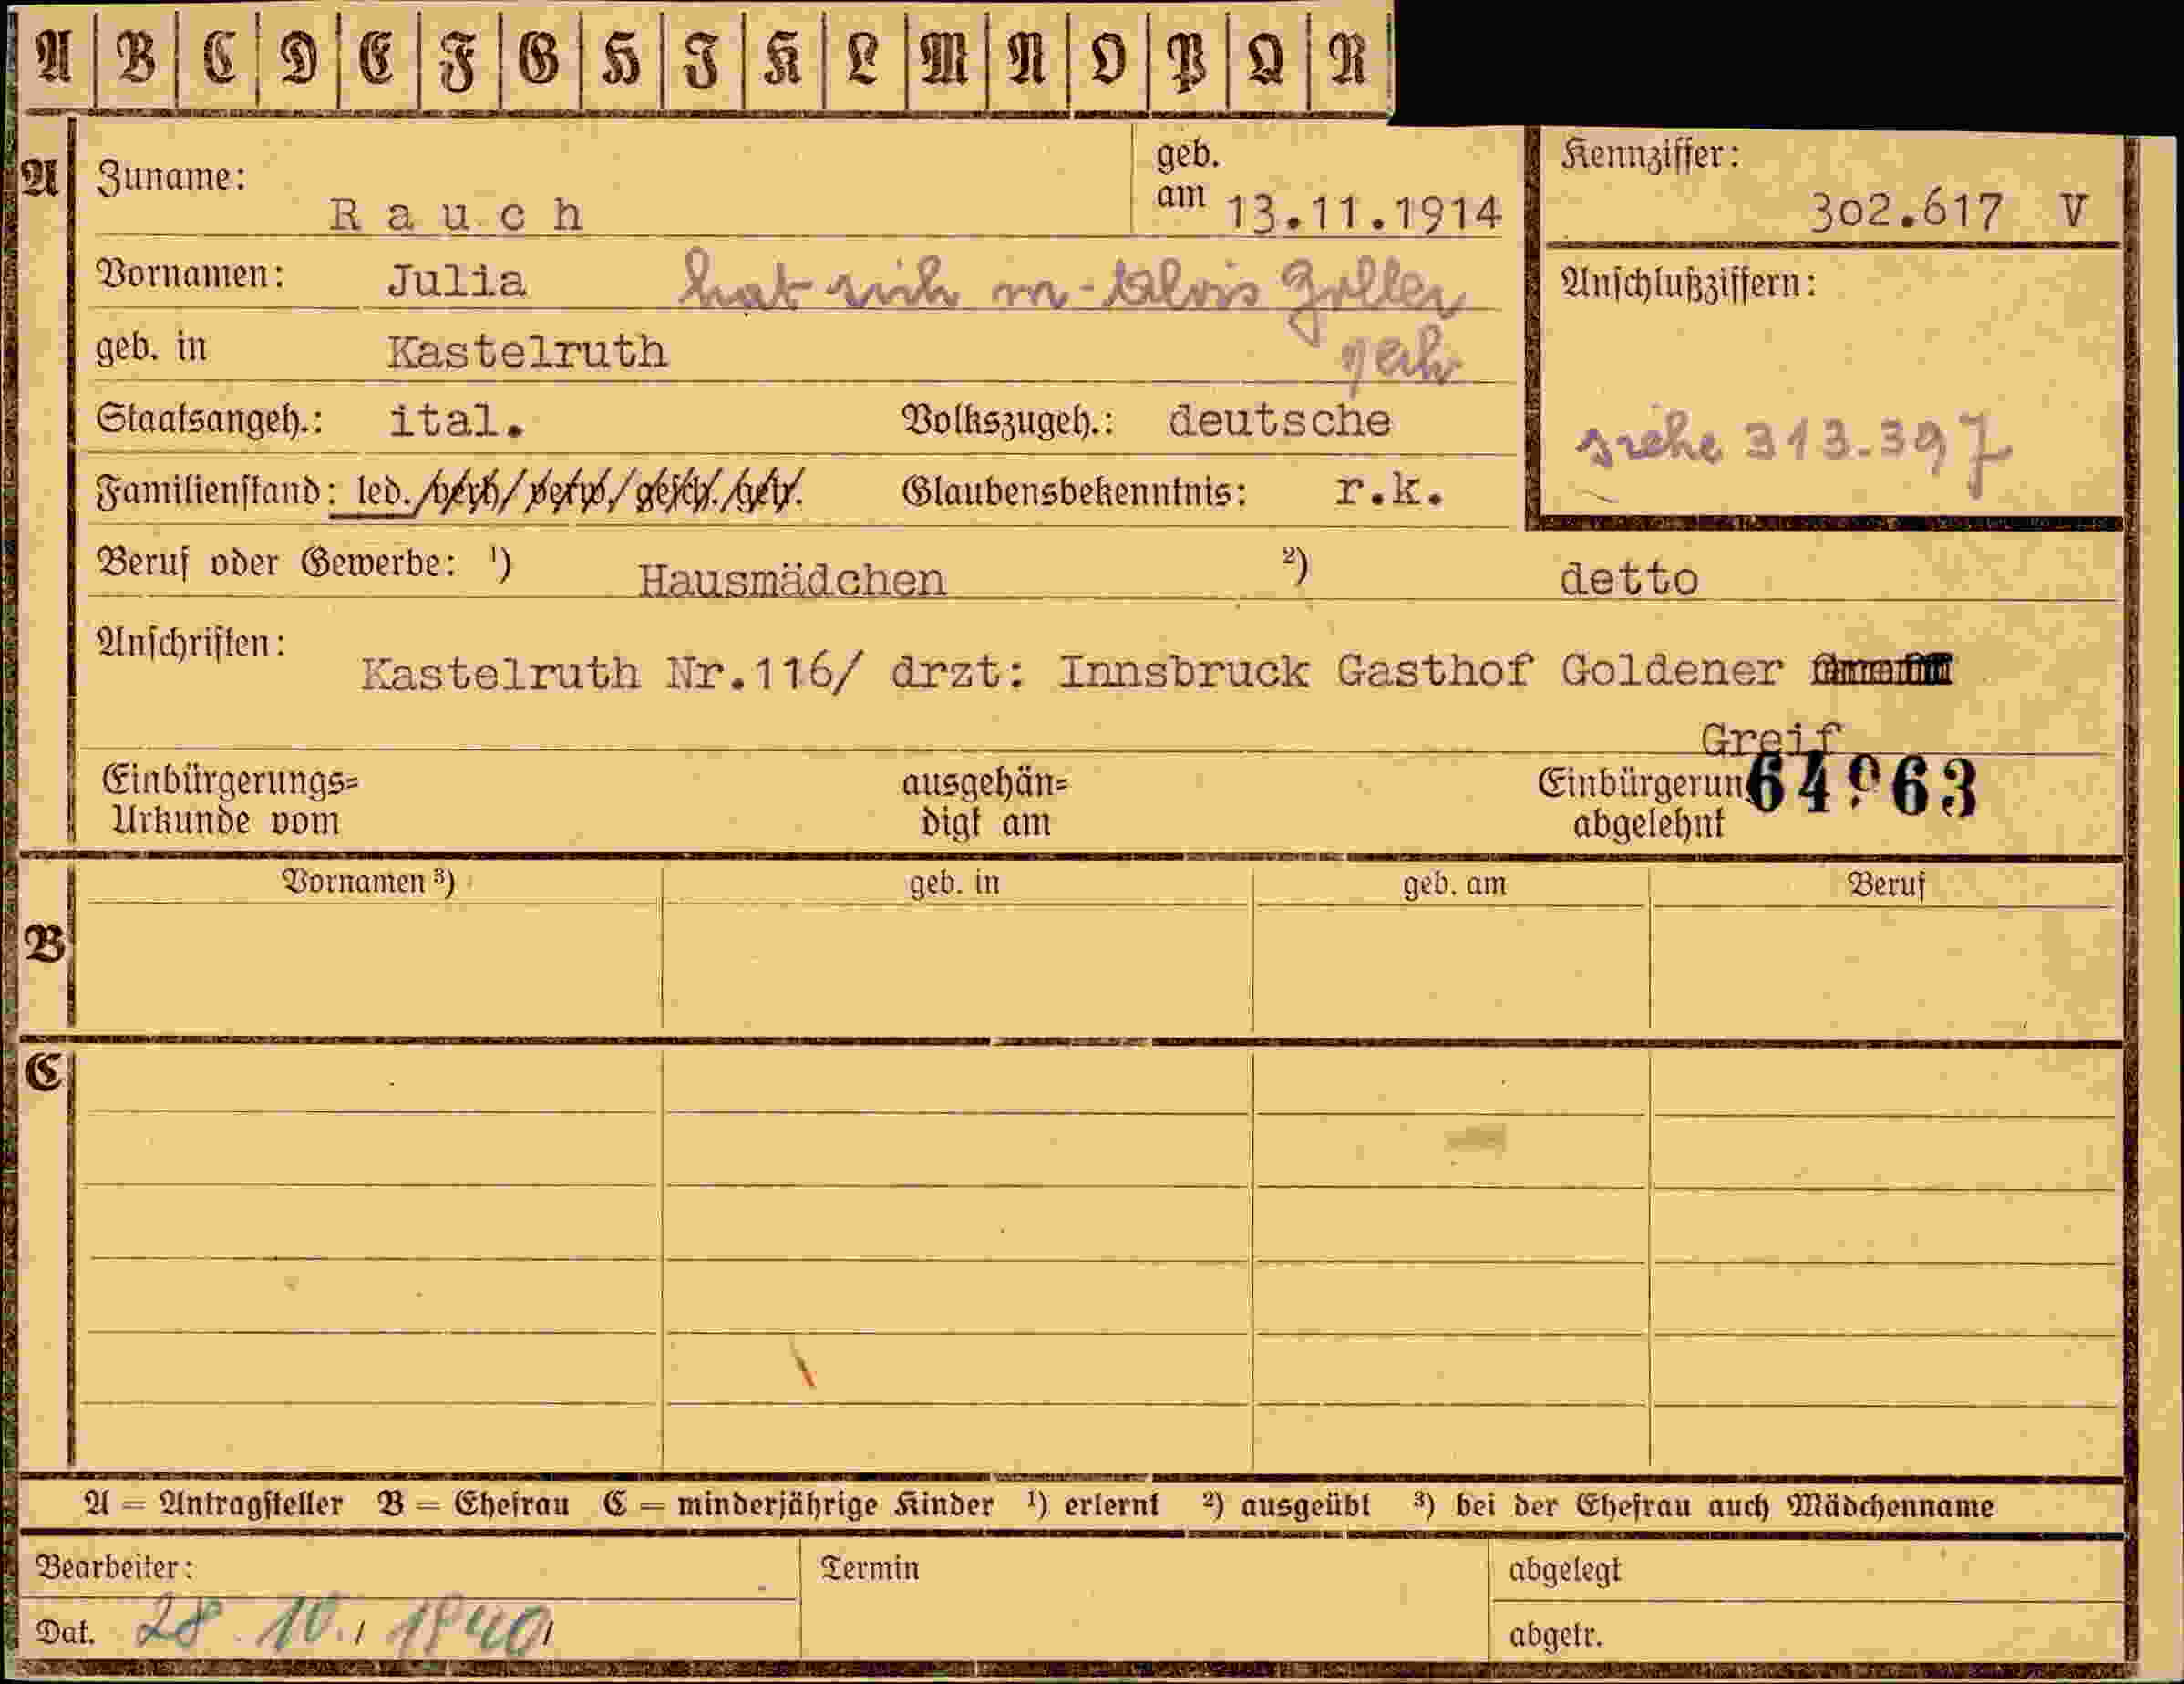 A B C D E F G H I K L M N O P Q R
A
Zuname: Rauch
geb. am 13.11.1914
Kennziffer: 302.617 V
Vornamen: Julia hat sich m. Alois Zoller
verh
geb. in Kastelruth
Anschlußziffern:
siehe 313.397
Staatsangeh.: ital. Volkszugeh.: deutsche
Familienstand: led./verh/verw./gesch./getr. Glaubensbekenntnis: r.k.
Beruf oder Gewerbe: ¹) Hausmädchen ²) detto
Anschriften: Kastelruth Nr.116/ drzt: Innsbruck Gasthof Goldener
Greif
Einbürgerungs= ausgehän= Einbürgerun
Urkunde vom digt am abgelehnt
B
Vornamen ³) geb. in geb. am Beruf
C
A = Antragsteller B = Ehefrau C = minderjährige Kinder ¹) erlernt ²) ausgeübt ³) bei der Ehefrau auch Mädchenname
Bearbeiter: Termin abgelegt
Dat. 28.10. 1940 abgetr.